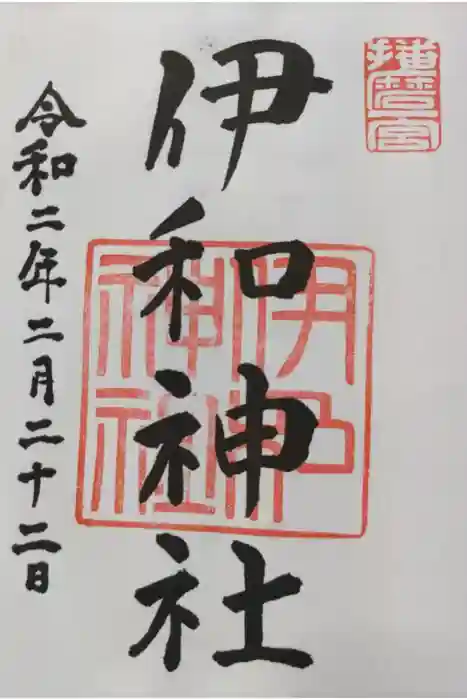 播磨一宮
伊和神社
伊和神社
令和二年二月二十二日